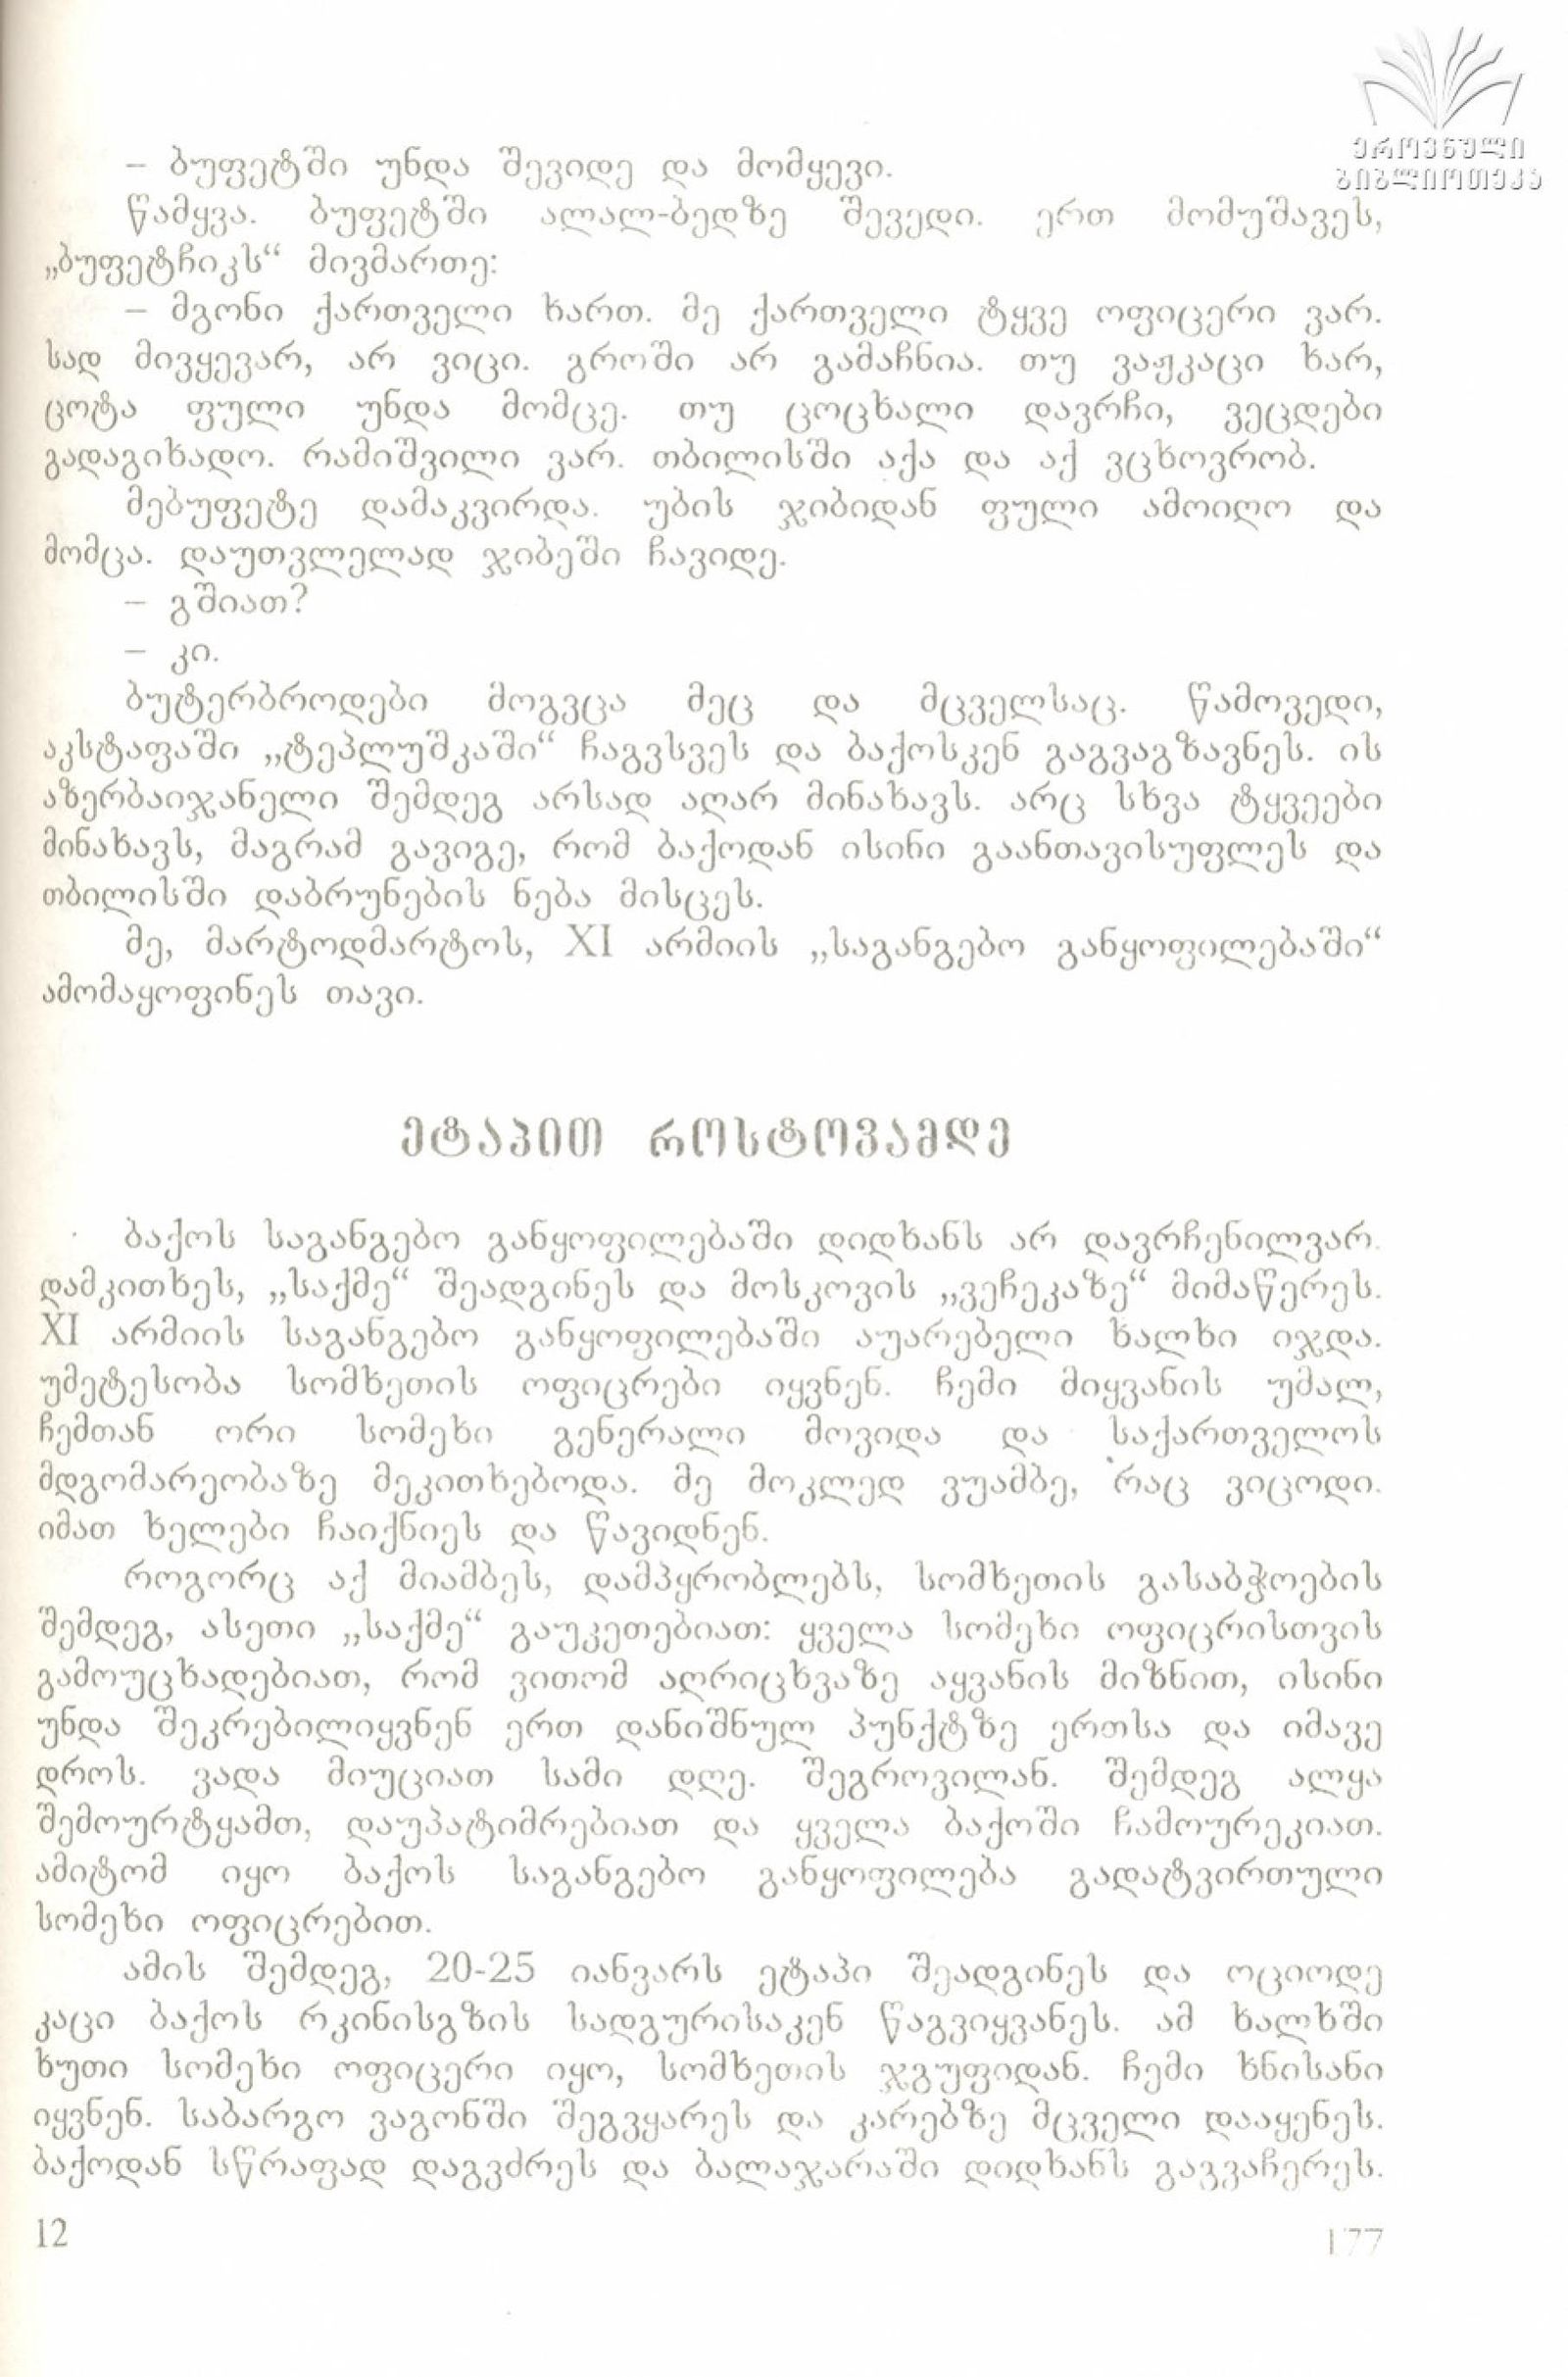 ეროვნული
ბიბლიოთეკა
– ბუფეტში უნდა შევიდე და მომყევი.
წამყვა. ბუფეტში ალალ-ბედზე შევედი. ერთ მომუშავეს,
„ბუფეტჩიკს“ მივმართე:
– მგონი ქართველი ხართ. მე ქართველი ტყვე ოფიცერი ვარ.
სად მივყევარ, არ ვიცი. გროში არ გამაჩნია. თუ ვაჟკაცი ხარ,
ცოტა ფული უნდა მომცე. თუ ცოცხალი დავრჩი, ვეცდები
გადაგიხადო. რამიშვილი ვარ. თბილისში აქა და აქ ვცხოვრობ.
მებუფეტე დამაკვირდა. უბის ჯიბიდან ფული ამოიღო და
მომცა. დაუთვლელად ჯიბეში ჩავიდე.
– გშიათ?
– კი.
ბუტერბროდები მოგვცა მეც და მცველსაც. წამოვედი,
აკსტაფაში „ტეპლუშკაში“ ჩაგვსვეს და ბაქოსკენ გაგვაგზავნეს. ის
აზერბაიჯანელი შემდეგ არსად აღარ მინახავს. არც სხვა ტყვეები
მინახავს, მაგრამ გავიგე, რომ ბაქოდან ისინი გაანთავისუფლეს და
თბილისში დაბრუნების ნება მისცეს.
მე, მარტოდმარტოს, XI არმიის „საგანგებო განყოფილებაში“
ამომაყოფინეს თავი.
ეტაპით როსტოვამდე
ბაქოს საგანგებო განყოფილებაში დიდხანს არ დავრჩენილვარ.
დამკითხეს, „საქმე“ შეადგინეს და მოსკოვის „ვეჩეკაზე“ მიმაწერეს.
XI არმიის საგანგებო განყოფილებაში აუარებელი ხალხი იჯდა.
უმეტესობა სომხეთის ოფიცრები იყვნენ. ჩემი მიყვანის უმალ,
ჩემთან ორი სომეხი გენერალი მოვიდა და საქართველოს
მდგომარეობაზე მეკითხებოდა. მე მოკლედ ვუამბე, რაც ვიცოდი.
იმათ ხელები ჩაიქნიეს და წავიდნენ.
როგორც აქ მიამბეს, დამპყრობლებს, სომხეთის გასაბჭოების
შემდეგ, ასეთი „საქმე“ გაუკეთებიათ: ყველა სომეხი ოფიცრისთვის
გამოუცხადებიათ, რომ ვითომ აღრიცხვაზე აყვანის მიზნით, ისინი
უნდა შეკრებილიყვნენ ერთ დანიშნულ პუნქტზე ერთსა და იმავე
დროს. ვადა მიუციათ სამი დღე. შეგროვილან. შემდეგ ალყა
შემოურტყამთ, დაუპატიმრებიათ და ყველა ბაქოში ჩამოურეკიათ.
ამიტომ იყო ბაქოს საგანგებო განყოფილება გადატვირთული
სომეხი ოფიცრებით.
ამის შემდეგ, 20-25 იანვარს ეტაპი შეადგინეს და ოციოდე
კაცი ბაქოს რკინისგზის სადგურისაკენ წაგვიყვანეს. ამ ხალხში
ხუთი სომეხი ოფიცერი იყო, სომხეთის ჯგუფიდან. ჩემი ხნისანი
იყვნენ. საბარგო ვაგონში შეგვყარეს და კარებზე მცველი დააყენეს.
ბაქოდან სწრაფად დაგვძრეს და ბალაჯარაში დიდხანს გაგვაჩერეს.
12
177